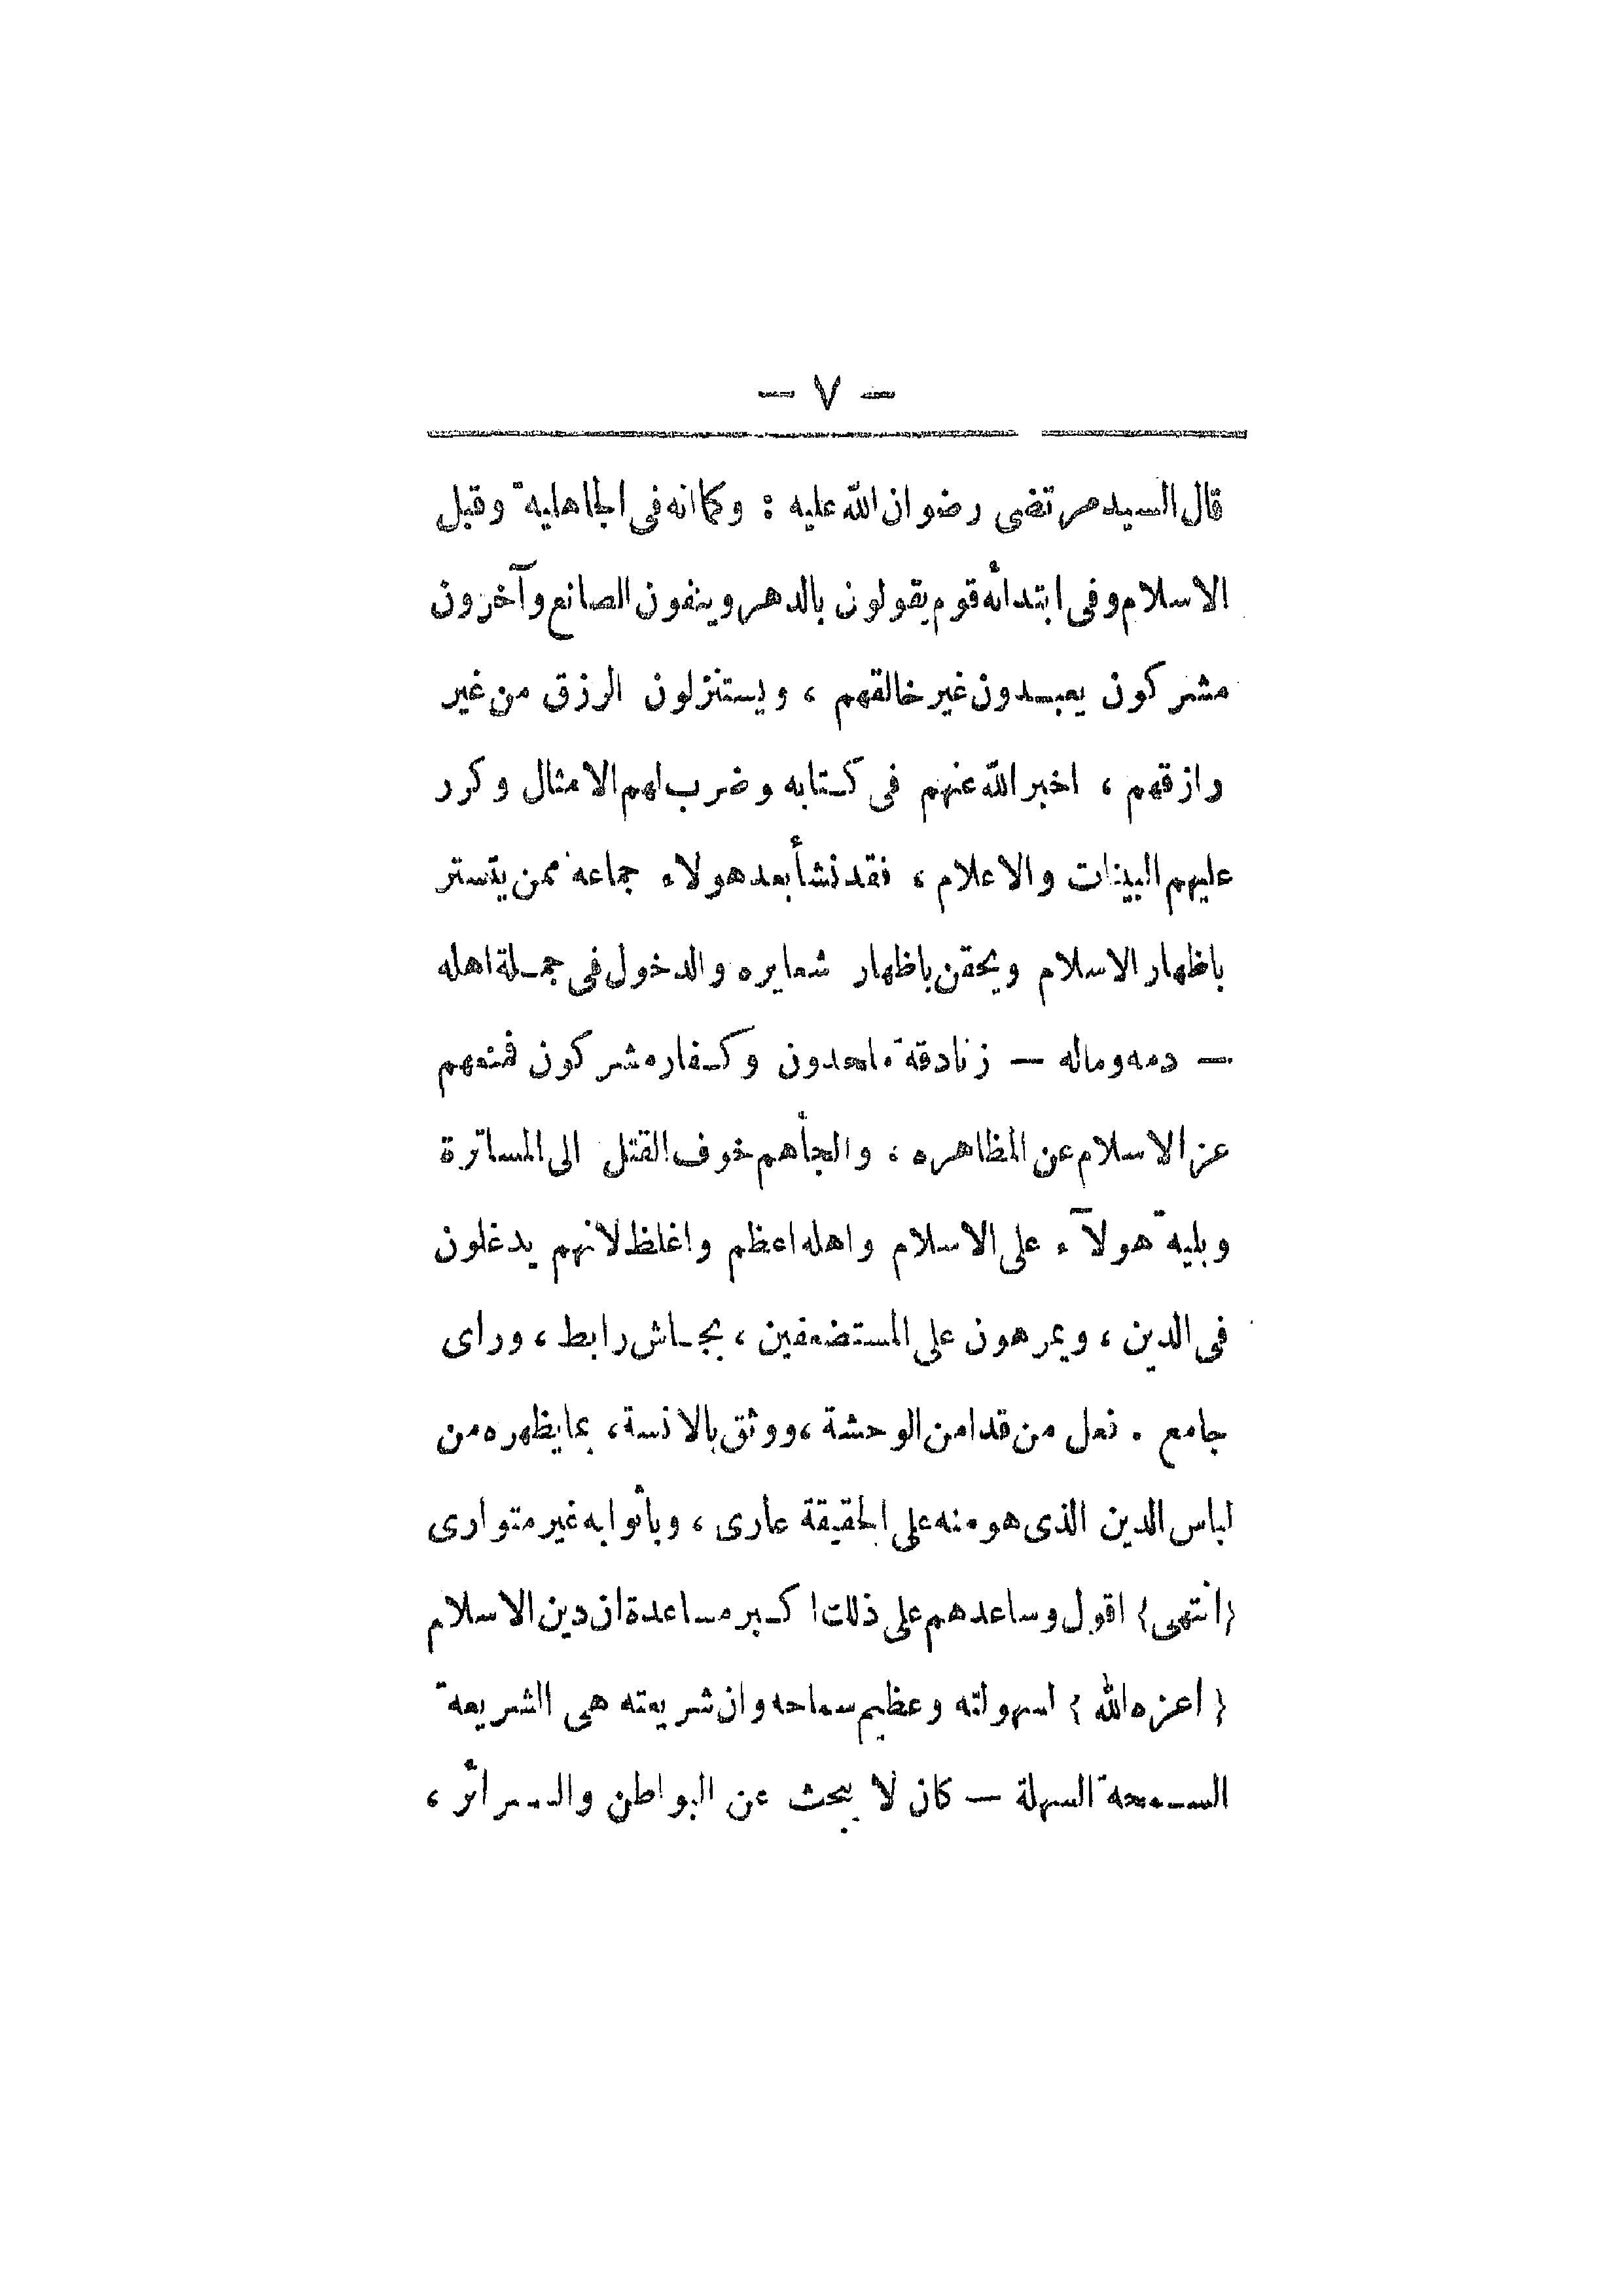 — ٧ —
قال السيد مرتضى رضوان الله عليه : وكما انه فى الجاهلية وقبل
الاسلام وفى ابتدائه قوم يقولون بالدهر وينفون الصانع وآخرون
مشركون يعبدون غير خالقهم ، ويستنزلون الرزق من غير
رازقهم ، اخبر الله عنهم فى كتابه وضرب لهم الامثال وكرر
عليهم البينات والاعلام ، فقد نشأ بعد هولاء جماعة ممن يتستر
باظهار الاسلام ويحقن باظهار شعايره والدخول فى جملة اهله
— دمه وماله — زنادقة ملحدون وكفار مشركون فمنعهم
عز الاسلام عن المظاهره ، والجأهم خوف القتل الى المساترة
وبلية هولآء على الاسلام واهله اعظم واغلظ لانهم يدغلون
فى الدين ، ويمرهون على المستضعفين ، بجاش رابط ، وراى
جامع . فعل من قد امن الوحشة ، ووثق بالانسة ، بما يظهره من
لباس الدين الذى هو منه على الحقيقة عارى ، وباثوابه غير متوارى
{انتهى} اقول وساعدهم على ذلك اكبر مساعدة ان دين الاسلام
{ اعزه الله } لسهولته وعظيم سماحه وان شريعته هى الشريعة
السمحة السهلة — كان لا يبحث عن البواطن والسرائر ،